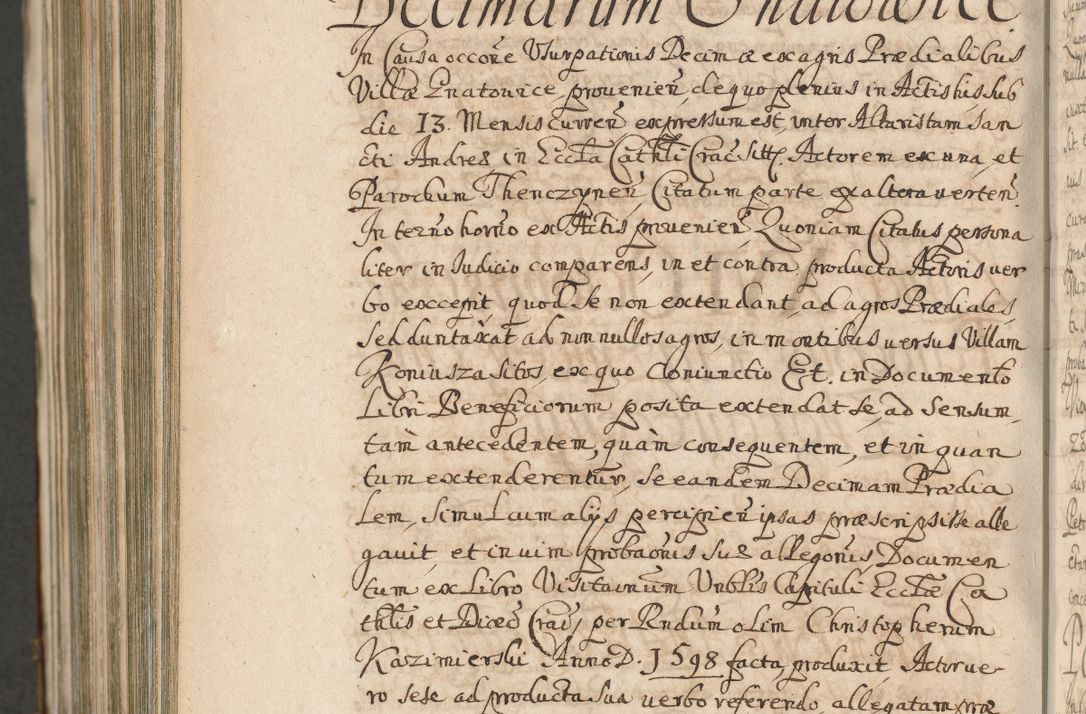 Decimarum Gnatowice
In Causa occõne Usurpationis Decimæ ex agris Prædialibus
Villæ Gnatowice provenien̄, de quo plenius in Actis his sub
die 13. Mensis curren̄ expressum est, inter Altaristam San
cti Andreæ in Eccła Cathłi Crac̄ sitt. Actorem ex una, et
Parochum Thenczynen̄, Citatum parte ex altera verten̄.
In termo horno ex Actis provenien̄, Quoniam Citatus persona
liter in Judicio comparens, in et contra producta Actoris ver
bo excepit, quod se non extendant, ad agros Prædiales,
sed duntaxat ad nonnullos agros, in montibus versus Villam
Koniusza sitos, ex quo Coniunctio Et. in Documento
Libri Beneficiorum posita extendat se, ad sensum
tam antecedentem, quàm consequentem, et in quan
tum extenderentur, se eandem Decimam Prædia
lem, simul cum alijs percipien̄ ipsas præscripsisse alle
gavit, et in vim probaōnis suæ allegōnis Documen
tum ex Libro Visitaōnum Vnblis Capituli Eccłæ Ca
thłis et Diæc̄ Crac̄, per Rndum olim Christopherum
Kazimierski Anno D. 1598 facta, produxit, Actor ve
ro sese ad producta sua verbo referendo, allegatam præ